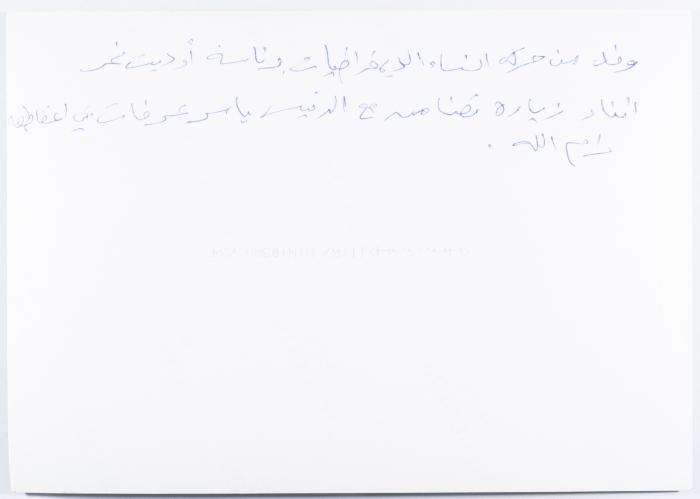 وفد من حركة النساء الديمقراطيات برئاسة أوديت نمر
اثناء زيارة تضامن مع الرئيس ياسر عرفات في
رام الله .